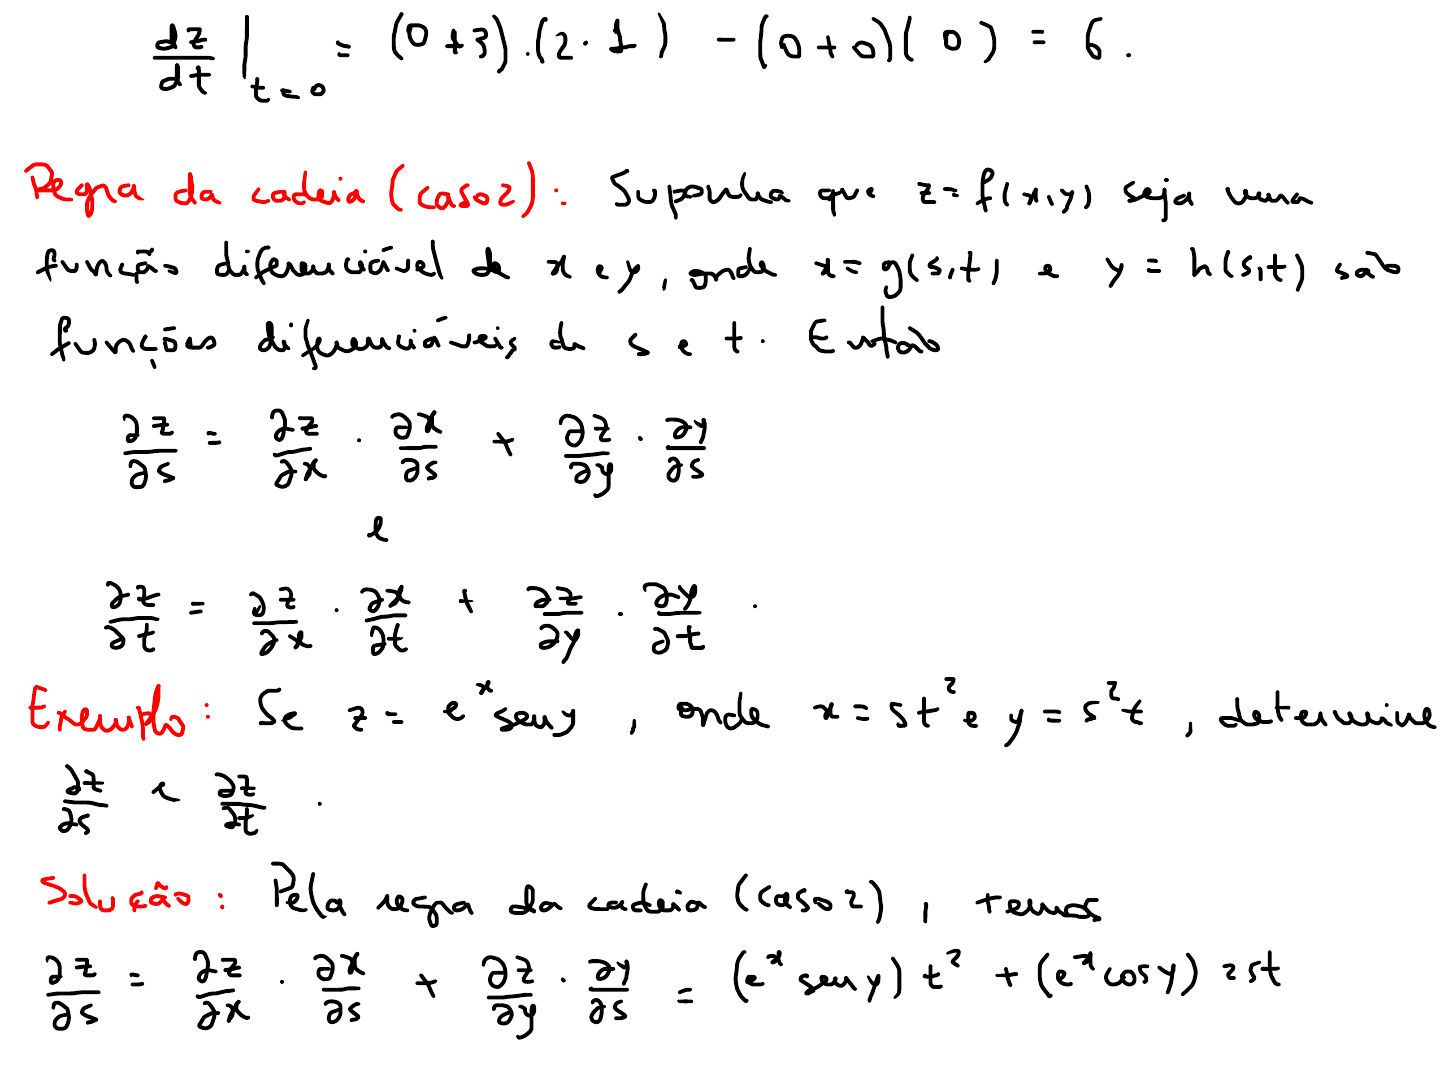 dz/dt |t=0 = (0+3).(2·1) - (0+0)(0) = 6.
Regra da cadeia (caso 2): Suponha que z=f(x,y) seja uma
função diferenciável de x e y, onde x=g(s,t) e y=h(s,t) são
funções diferenciáveis de s e t. Então
∂z/∂s = ∂z/∂x · ∂x/∂s + ∂z/∂y · ∂y/∂s
e
∂z/∂t = ∂z/∂x · ∂x/∂t + ∂z/∂y · ∂y/∂t .
Exemplo: Se z = e^x sen y, onde x = st² e y = s²t, determine
∂z/∂s e ∂z/∂t .
Solução: Pela regra da cadeia (caso 2), temos
∂z/∂s = ∂z/∂x · ∂x/∂s + ∂z/∂y · ∂y/∂s = (e^x sen y) t² + (e^x cos y) 2st